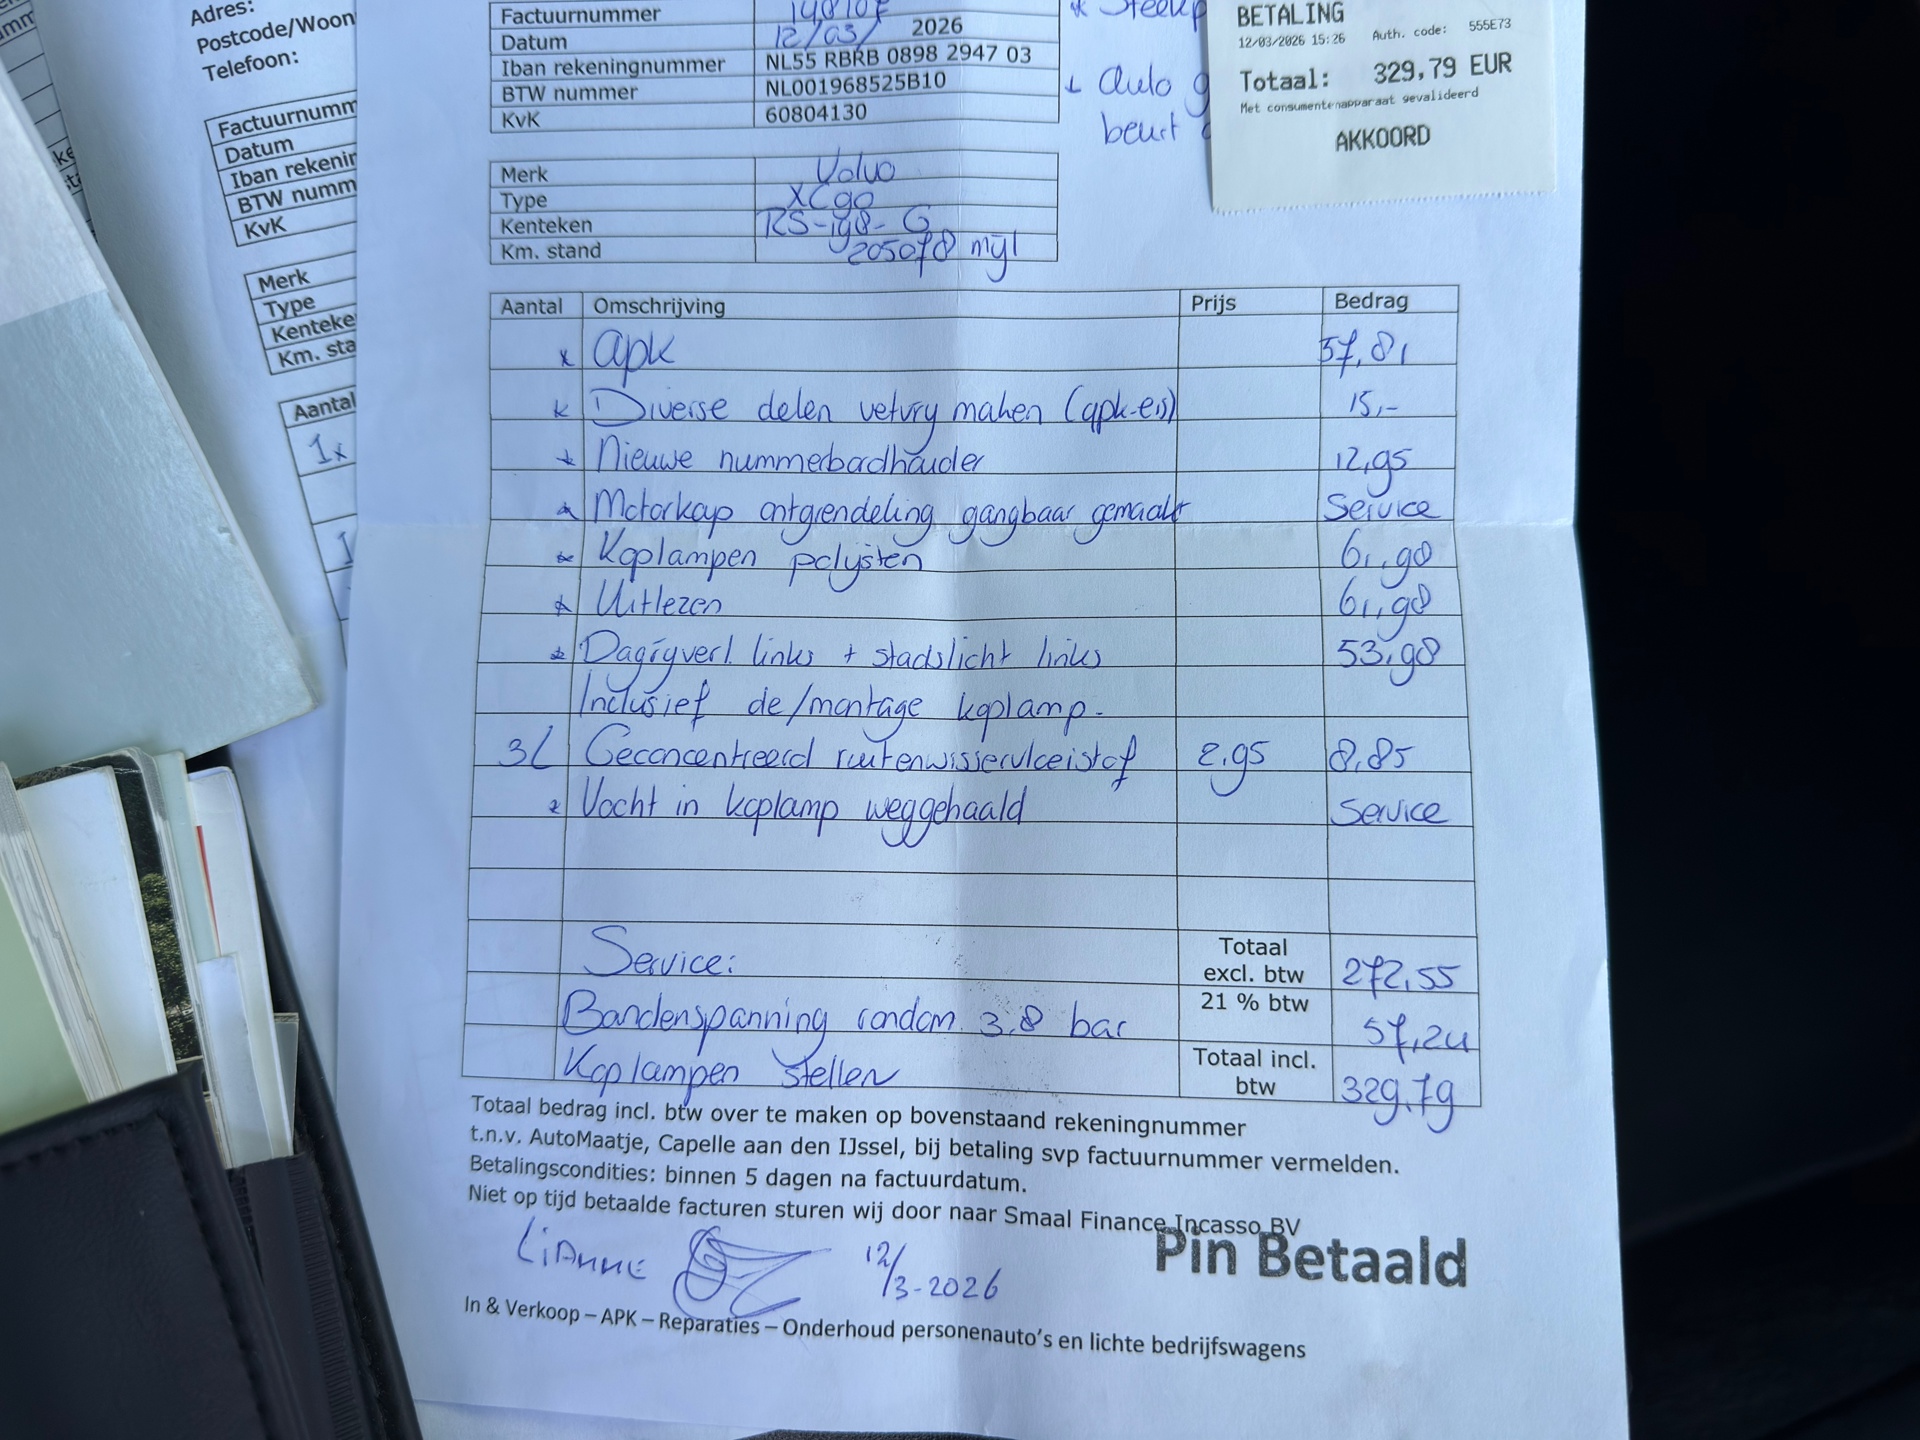 Adres:
Postcode/Woon
Telefoon:
Factuurnumm
Datum
Iban rekenin
BTW numm
KvK
Merk
Type
Kenteke
Km. sta
Aantal
1x
Factuurnummer
Datum 12/03/ 2026
Iban rekeningnummer NL55 RBRB 0898 2947 03
BTW nummer NL001968525B10
KvK 60804130
* Steekp
Auto g
beurt
BETALING
12/03/2026 15:26 Auth. code: 555E73
Totaal: 329,79 EUR
Met consumentenapparaat gevalideerd
AKKOORD
Merk Volvo
Type XC90
Kenteken RS-198-G
Km. stand 205078 mijl
Aantal Omschrijving Prijs Bedrag
x apk 57,81
x Diverse delen vetvrij maken (apk-eis) 15,-
x Nieuwe nummerbordhouder 12,95
x Motorkap ontgrendeling gangbaar gemaakt Service
x Koplampen polijsten 61,98
x Uitlezen 61,98
x Dagrijverl. links + stadslicht links 53,98
Inclusief de/montage koplamp.
3L Geconcentreerd ruitenwisservloeistof 2,95 8,85
x Vocht in koplamp weggehaald Service
Service: Totaal excl. btw 272,55
Bandenspanning rondom 3.8 bar 21 % btw 57,24
Koplampen stellen Totaal incl. btw 329,79
Totaal bedrag incl. btw over te maken op bovenstaand rekeningnummer
t.n.v. AutoMaatje, Capelle aan den IJssel, bij betaling svp factuurnummer vermelden.
Betalingscondities: binnen 5 dagen na factuurdatum.
Niet op tijd betaalde facturen sturen wij door naar Smaal Finance Incasso BV
Pin Betaald
Lianne 12/3-2026
In & Verkoop – APK – Reparaties – Onderhoud personenauto's en lichte bedrijfswagens